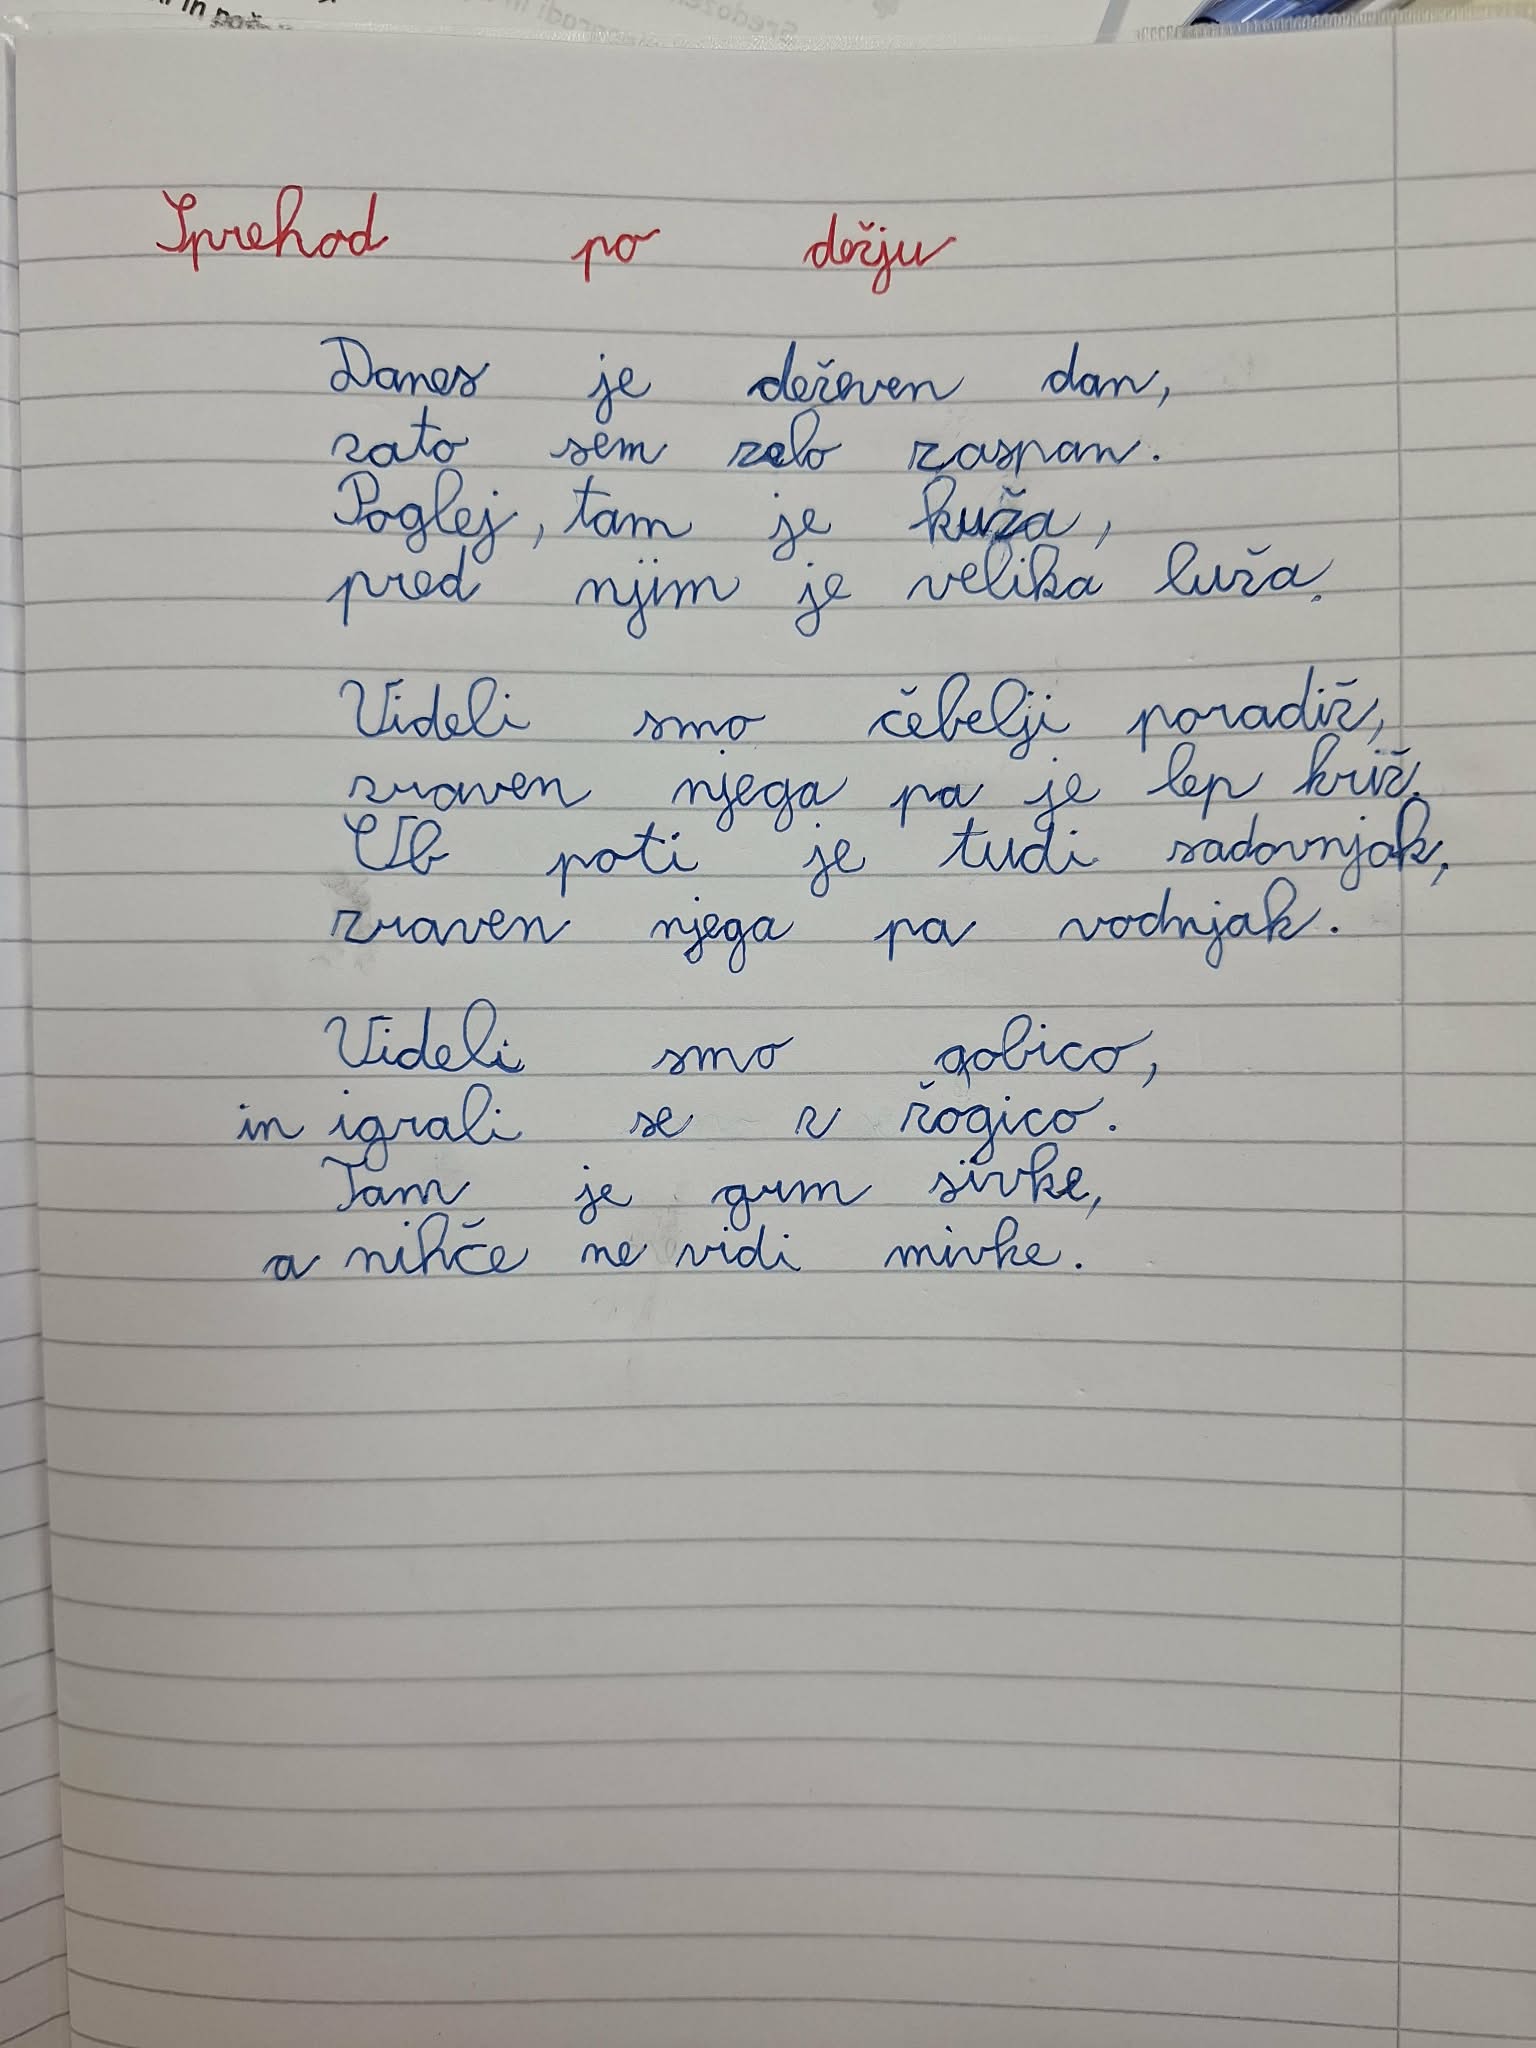 Sprehod po dežju
Danes je deževen dan,
zato sem zelo zaspan.
Poglej, tam je kuža,
pred njim je velika luža.
Videli smo čebelji poradiž,
zraven njega pa je lep križ.
Ob poti je tudi sadovnjak,
zraven njega pa vodnjak.
Videli smo gobico,
in igrali se z žogico.
Tam je grm sivke,
a nihče ne vidi mivke.